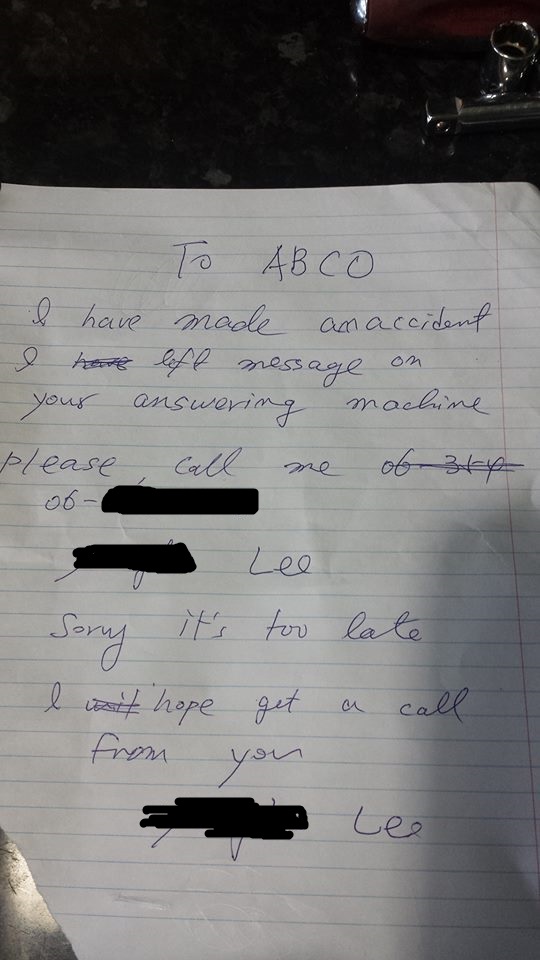 To ABCO
I have made an accident
I have left message on
your answering machine
please call me 06-314
06-
Lee
Sorry it's too late
I wait hope get a call
from you
Lee